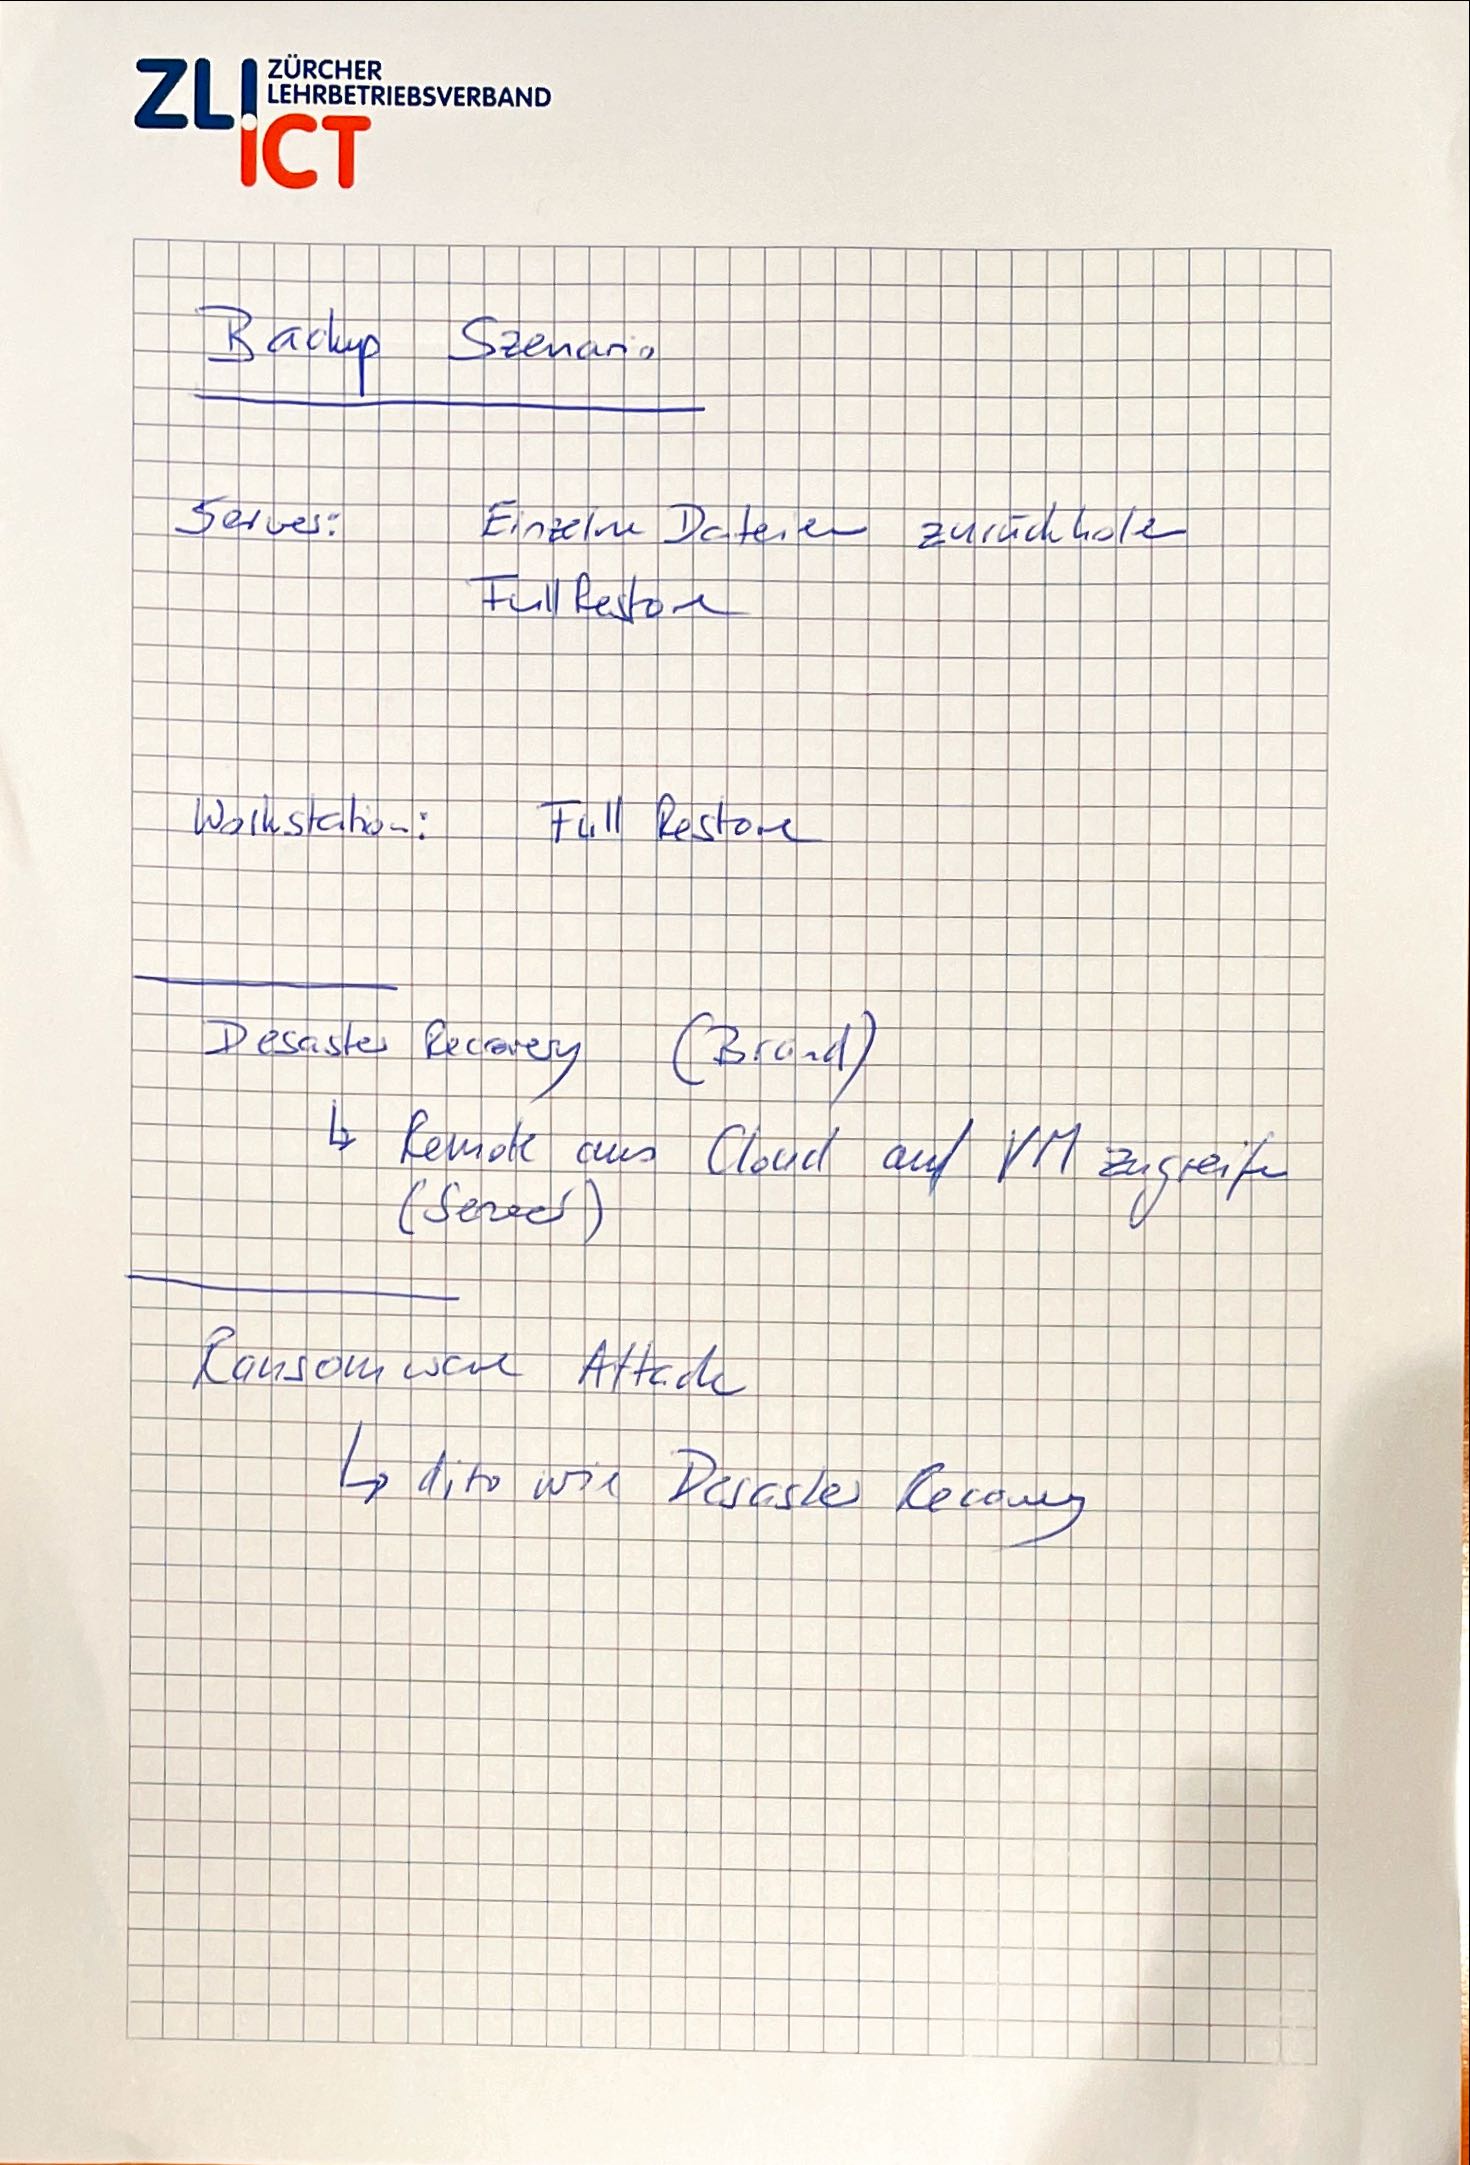 ZLI ZÜRCHER
LEHRBETRIEBSVERBAND
ICT
Backup Szenario
Server: Einzelne Dateien zurückholen
Full Restore
Workstation: Full Restore
Desaster Recovery (Brand)
↳ Remote aus Cloud auf VM zugreifen
(Server)
Ransomware Attack
↳ dito wie Desaster Recovery